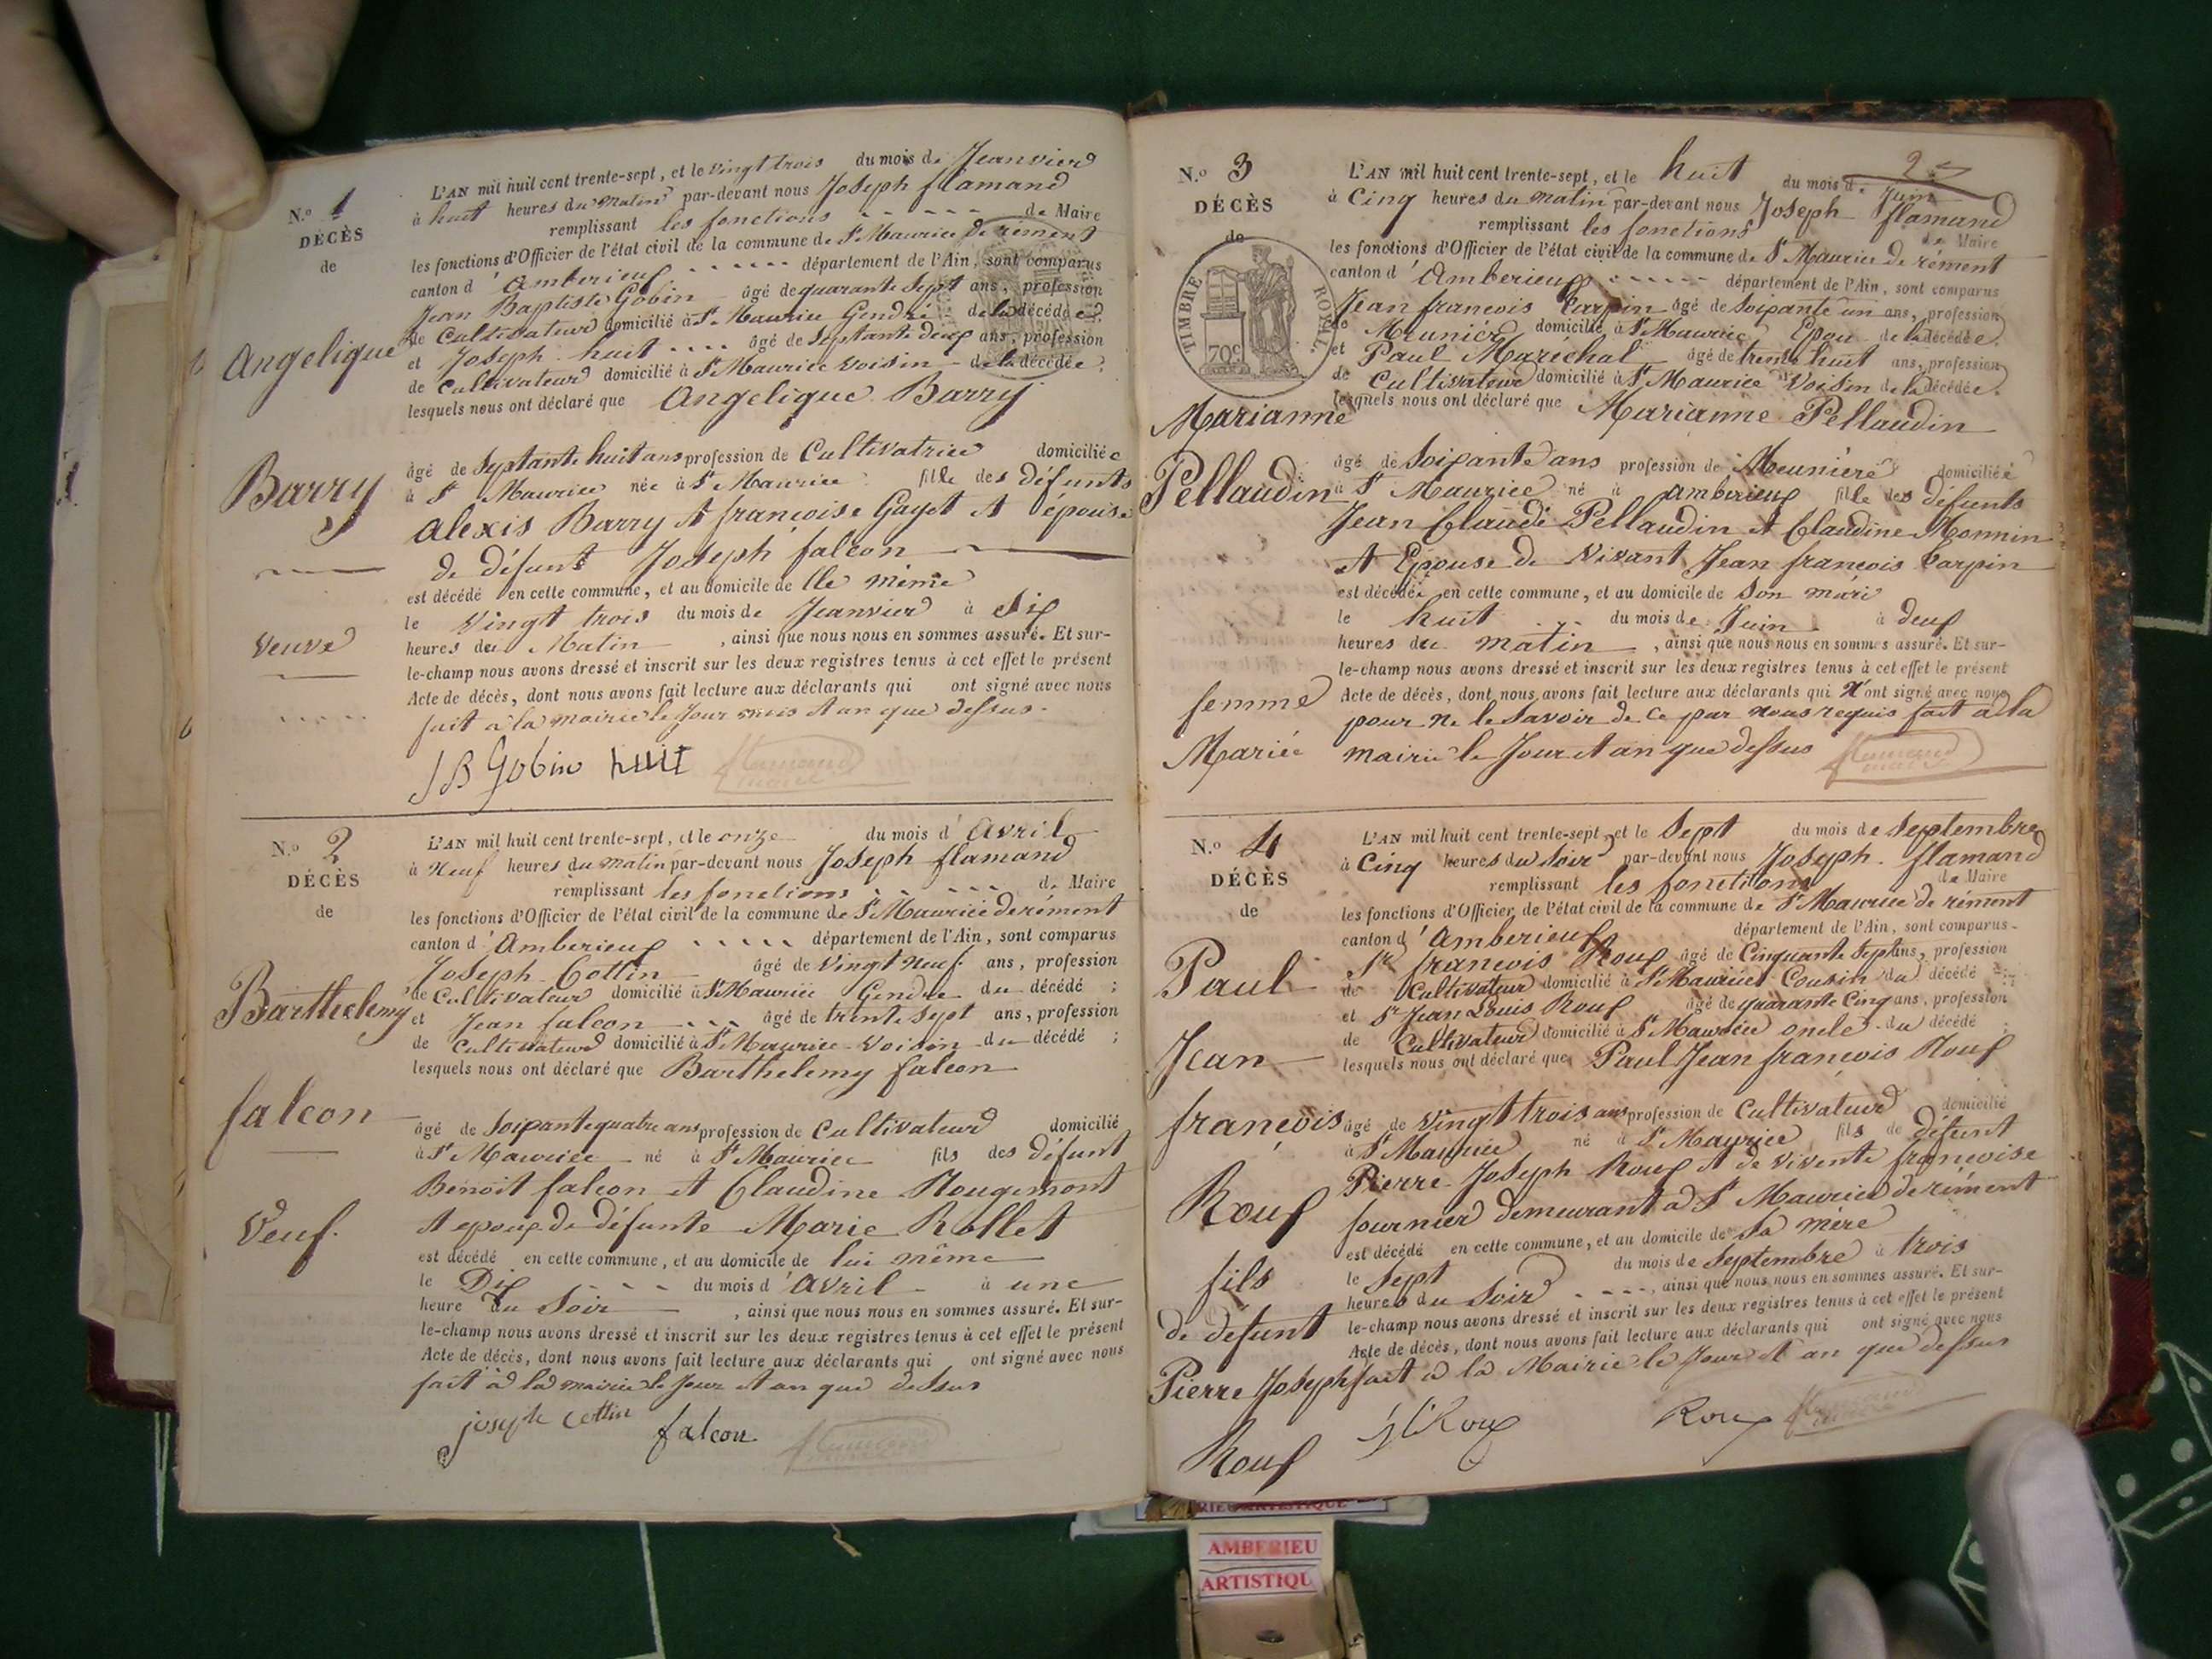 N.º 1
DÉCÈS
de
Angelique
Barry
Veuve
L'AN mil huit cent trente-sept, et le vingt trois du mois de Jeanvier
à huit heures du matin par-devant nous Joseph flamand
remplissant les fonctions de Maire
les fonctions d'Officier de l'état civil de la commune de St Maurice de rément
canton d'Amberieux département de l'Ain, sont comparus
Jean Baptiste Gobin âgé de quarante Sept ans, profession
de Cultivateur domicilié à St Maurice Gendre de la décédée
et Joseph huit âgé de Septante deux ans, profession
de Cultivateur domicilié à St Maurice voisin de la décédée;
lesquels nous ont déclaré que Angelique Barry
âgé de Septante huit ans profession de Cultivatrice domiciliée
à St Maurice née à St Maurice fille des défunts
Alexis Barry et francoise Gayet et épouse
de défunt Joseph falcon
est décédé en cette commune, et au domicile de lle même
le Vingt trois du mois de Jeanvier à Six
heures du Matin, ainsi que nous nous en sommes assuré. Et sur-
le-champ nous avons dressé et inscrit sur les deux registres tenus à cet effet le présent
Acte de décès, dont nous avons fait lecture aux déclarants qui ont signé avec nous
fait à la mairie le Jour mois et an que dessus.
JB Gobin huit flamand maire
N.º 2
DÉCÈS
de
Barthelemy
falcon
Veuf.
L'AN mil huit cent trente-sept, et le onze du mois d'Avril
à Neuf heures du matin par-devant nous Joseph flamand
remplissant les fonctions de Maire
les fonctions d'Officier de l'état civil de la commune de St Maurice de rément
canton d'Amberieux département de l'Ain, sont comparus
Joseph Cottin âgé de Vingt Neuf ans, profession
de Cultivateur domicilié à St Maurice Gendre du décédé;
et Jean falcon âgé de trente Sept ans, profession
de Cultivateur domicilié à St Maurice Voisin du décédé;
lesquels nous ont déclaré que Barthelemy falcon
âgé de Soixante quatre ans profession de Cultivateur domicilié
à St Maurice né à St Maurice fils des défunt
Benoit falcon et Claudine Rougemont
et epoux de défunte Marie Rollet
est décédé en cette commune, et au domicile de lui même
le Dix du mois d'Avril à une
heure du Soir, ainsi que nous nous en sommes assuré. Et sur-
le-champ nous avons dressé et inscrit sur les deux registres tenus à cet effet le présent
Acte de décès, dont nous avons fait lecture aux déclarants qui ont signé avec nous
fait à la mairie le Jour et an que dessus
joseph cottin falcon flamand
2
N.º 3
DÉCÈS
de
TIMBRE ROYAL.
70c
Marianne
Pellaudin
femme
Mariée
L'AN mil huit cent trente-sept, et le huit du mois de Juin
à Cinq heures du matin par-devant nous Joseph flamand
remplissant les fonctions de Maire
les fonctions d'Officier de l'état civil de la commune de St Maurice de rément
canton d'Amberieux département de l'Ain, sont comparus
Jean francois Carpin âgé de Soixante un ans, profession
de Meunier domicilié à St Maurice Epou de la décédée.
et Paul Maréchal âgé de trente huit ans, profession
de Cultivateur domicilié à St Maurice Voisin de la décédée.
lesquels nous ont déclaré que Marianne Pellaudin
âgé de Soixante ans profession de Meunière domiciliée
à St Maurice né à Amberieux fille des défunts
Jean Claude Pellaudin et Claudine Monnin
et Epouse de Vivant Jean francois Carpin
est décédée en cette commune, et au domicile de Son mari
le huit du mois de Juin à deux
heures du matin, ainsi que nous nous en sommes assuré. Et sur-
le-champ nous avons dressé et inscrit sur les deux registres tenus à cet effet le présent
Acte de décès, dont nous avons fait lecture aux déclarants qui N'ont signé avec nous
pour ne le Savoir de ce par nous requis fait à la
mairie le Jour et an que dessus flamand maire
N.º 4
DÉCÈS
de
Paul
Jean
francois
Roux
fils
de defunt
Pierre Joseph
Roux
L'AN mil huit cent trente-sept, et le Sept du mois de Septembre
à Cinq heures du Soir par-devant nous Joseph flamand
remplissant les fonctions de Maire
les fonctions d'Officier de l'état civil de la commune de St Maurice de rément
canton d'Amberieux département de l'Ain, sont comparus
Sr francois Roux âgé de Cinquante Sept ans, profession
de Cultivateur domicilié à St Maurice Cousin du décédé
et Sr Jean Louis Roux âgé de quarante Cinq ans, profession
de Cultivateur domicilié à St Maurice oncle du décédé;
lesquels nous ont déclaré que Paul Jean francois Roux
âgé de Vingt trois ans profession de Cultivateur domicilié
à St Maurice né à St Maurice fils de défunt
Pierre Joseph Roux et de vivente francoise
fournier demeurant à St Maurice de rément
est décédé en cette commune, et au domicile de Sa mère
le Sept du mois de Septembre à trois
heures du Soir, ainsi que nous nous en sommes assuré. Et sur-
le-champ nous avons dressé et inscrit sur les deux registres tenus à cet effet le présent
Acte de décès, dont nous avons fait lecture aux déclarants qui ont signé avec nous
fait à la Mairie le Jour et an que dessus
Roux Roux flamand
AMBERIEU
ARTISTIQU